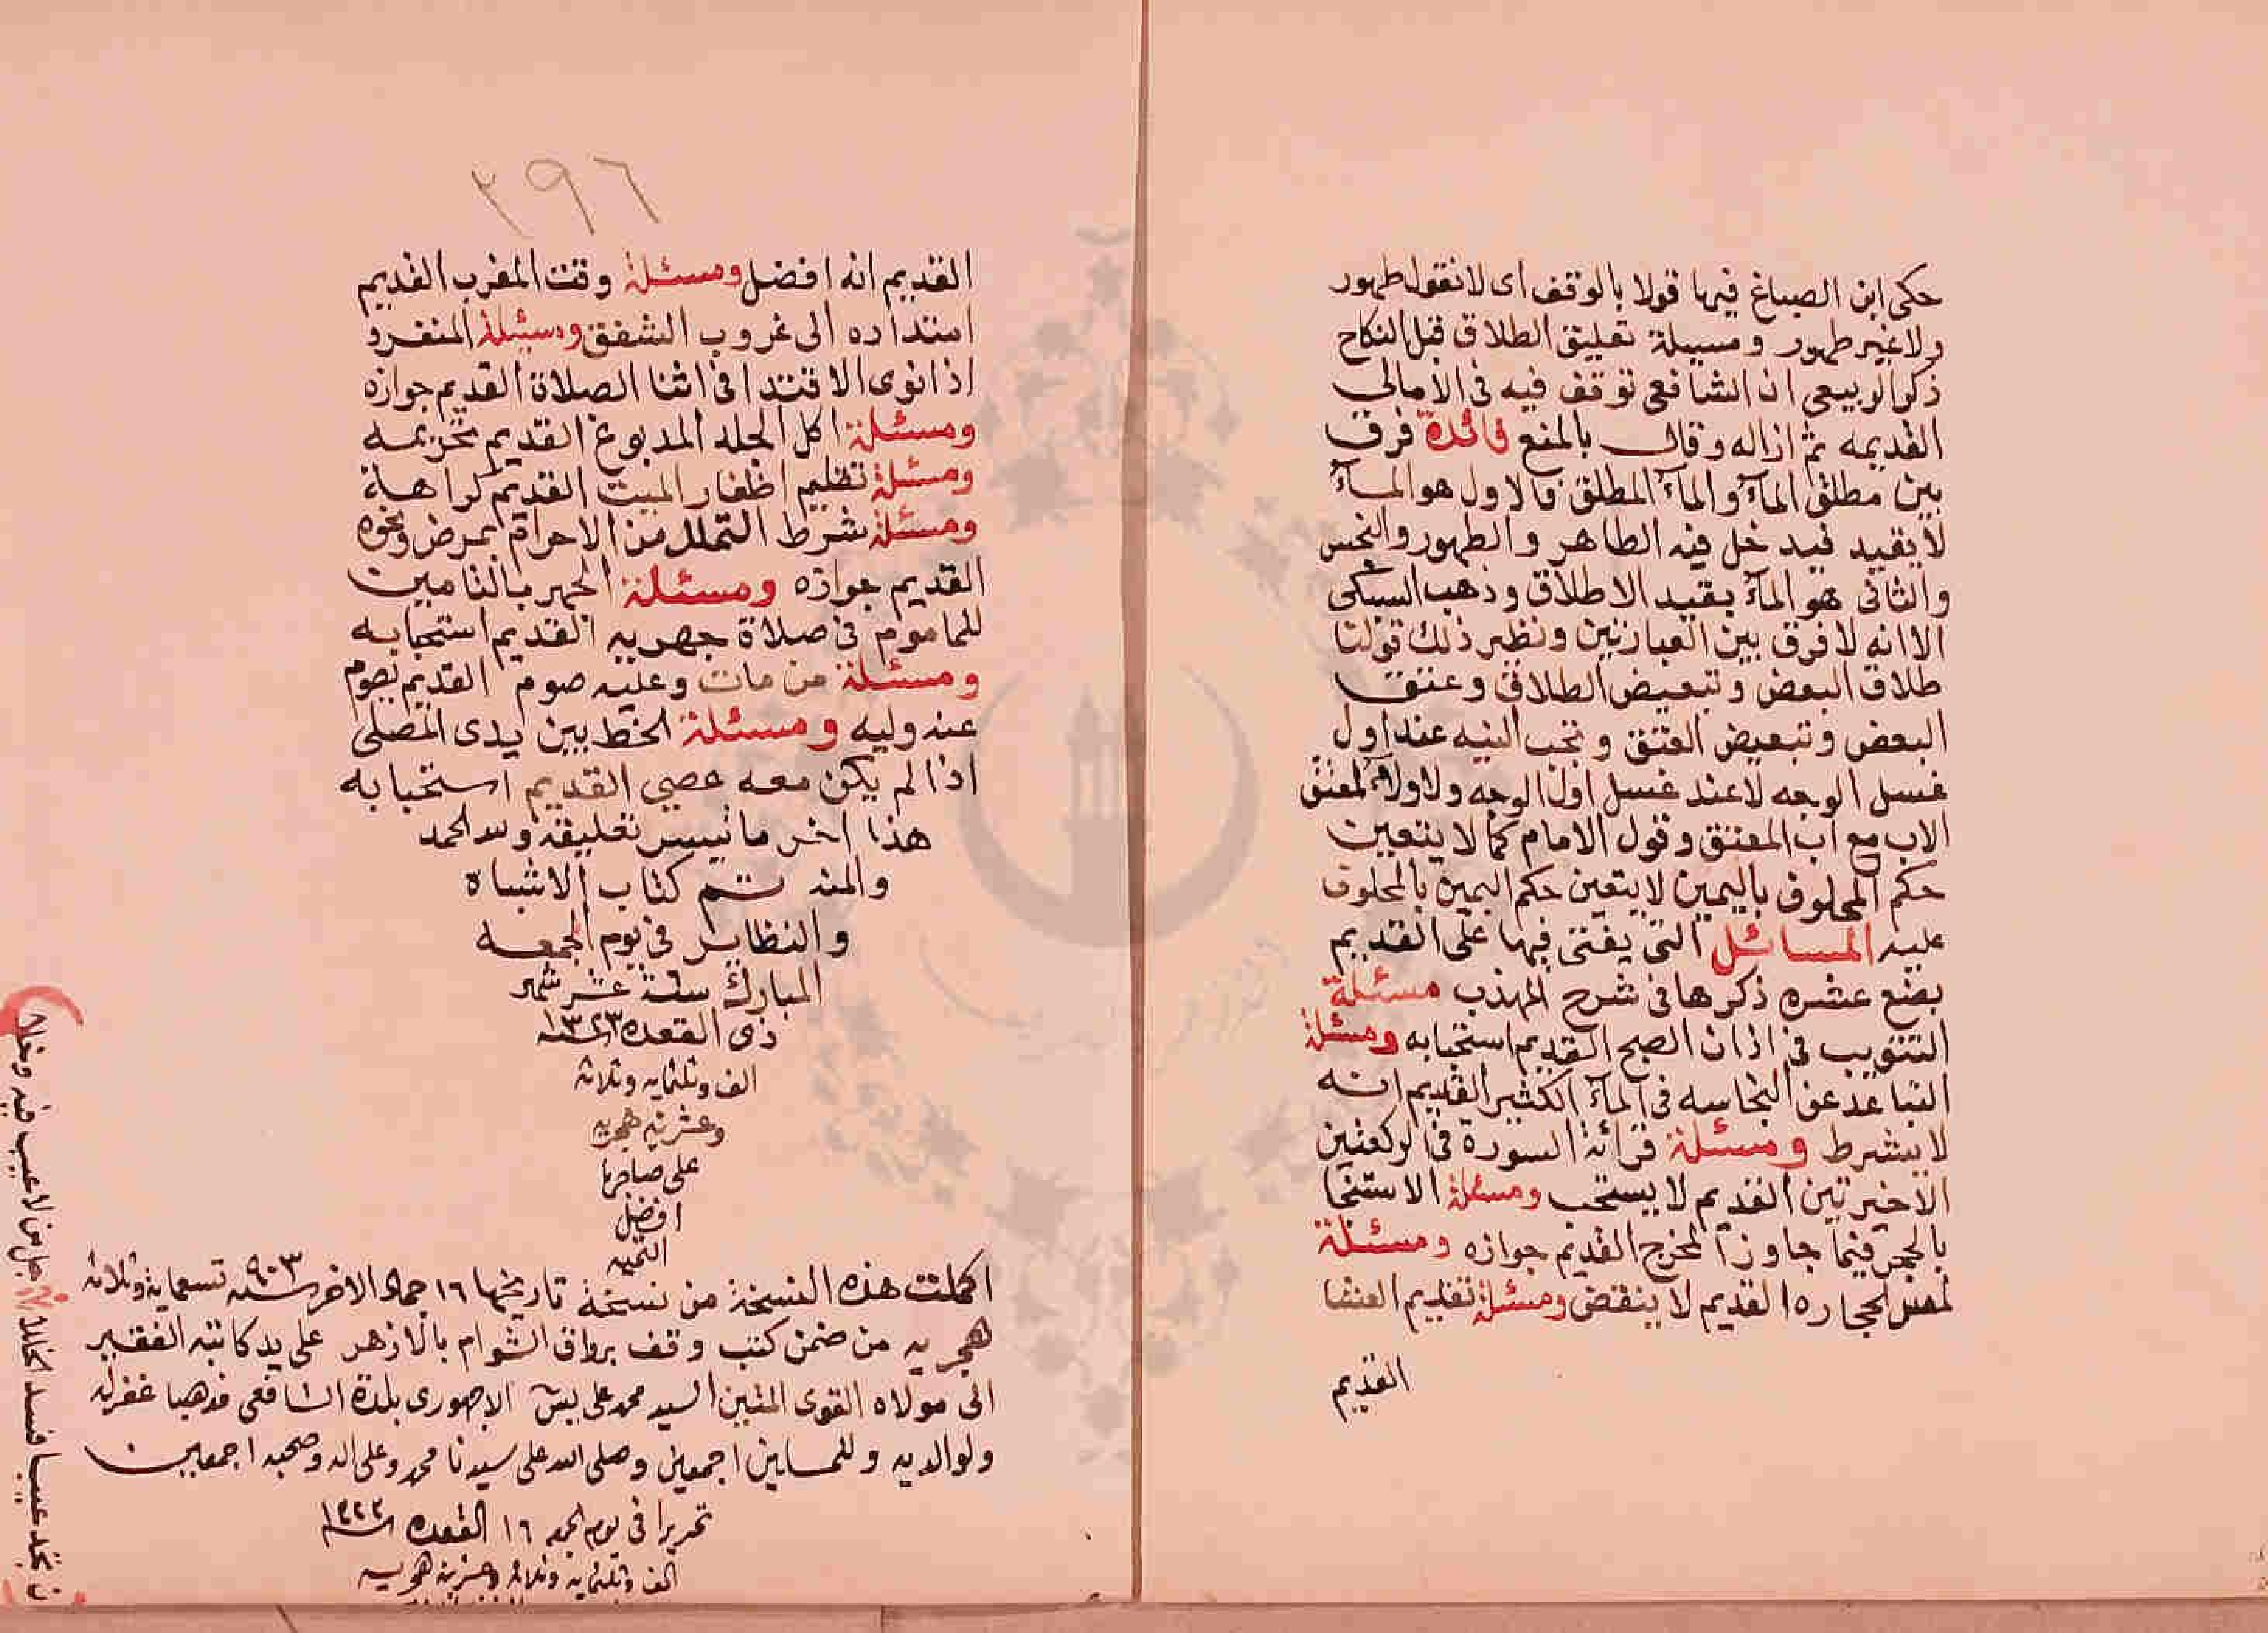 حكى ابن الصباغ فيها قولا بالوقف اى لا نقول طهور
ولا غير طهور ومسيلة تعليق الطلاق قبل النكاح
ذكر الربيعى ان الشافعى توقف فيه فى الامالى
القديمه ثم ازاله وقال بالمنع فائدة فرق
بين مطلق المآء والمآء المطلق فالاول هو المآء
لا بقيد فيدخل فيه الطاهر والطهور والنجس
والثانى هو المآء بقيد الاطلاق وذهب السبكى
الا انه لا فرق بين العبارتين ونظير ذلك قولنا
طلاق البعض وتبعيض الطلاق وعتق
البعض وتبعيض العتق وتجب النيه عند اول
غسل الوجه لا عند غسل اول الوجه ولا ولآء لمعتق
الاب مع اب المعتق وقول الامام كما لا يتعين
حكم المحلوف باليمين لا يتعين حكم اليمين بالمحلوف
عليه المسائل التى يفتى فيها على القديم
بضع عشره ذكرها فى شرح المهذب مسئلة
التثويب فى اذان الصبح القديم استحبابه ومسئلة
التباعد عن النجاسه فى المآء الكثير القديم انه
لا يشرط ومسئلة قرائة السورة فى الركعتين
الاخيرتين القديم لا يستحب ومسئلة الاستنجا
بالحجر فيما جاوز المخرج القديم جوازه ومسئلة
لمس المجاره القديم لا ينقض ومسئلة تقديم العشا
القديم
٢٩٦
القديم انه افضل ومسئلة وقت المغرب القديم
امتداده الى غروب الشفق ومسئلة المنفرد
اذا نوى الاقتدا فى اثنا الصلاة القديم جوازه
ومسئلة اكل الجلد المدبوغ القديم تحريمه
ومسئلة تقليم اظفار الميت القديم كراهة
ومسئلة شرط التحلل من الاحرام بمرض ونحوه
القديم جوازه ومسئلة الجهر بالتامين
للماموم فى صلاة جهريه القديم استحبابه
ومسئلة من مات وعليه صوم القديم يصوم
عنه وليه ومسئلة الخط بين يدى المصلى
اذا لم يكن معه عصى القديم استحبابه
هذا اخر ما تيسر تعليقه ولله الحمد
والمنه تم كتاب الاشباه
والنظاير فى يوم الجمعه
المبارك ستة عشر شهر
ذى القعده ١٣٢٣
الف وثلثمايه وثلاثه
وعشرين هجريه
على صاحبها
افضل
التحيه
اكملت هذه النسخة من نسخة تاريخها ١٦ جماد الاخر سنه ٩٠٣ تسعماية وثلاثه
هجريه من ضمن كتب وقف برواق الشوام بالازهر على يد كاتبه الفقير
الى مولاه القوى المتين السيد محمد على يس الاجهورى بلدة الشافعى مذهبا غفر له
ولوالديه وللمسلمين اجمعين وصلى الله على سيدنا محمد وعلى اله وصحبه اجمعين
تحريرا فى يوم الجمعه ١٦ القعده سنه ١٣٢٣
الف وثلثمايه وثلاثه وعشرين هجريه
ن تجد عيبا فسد الخللا جل من لا عيب فيه وعلا